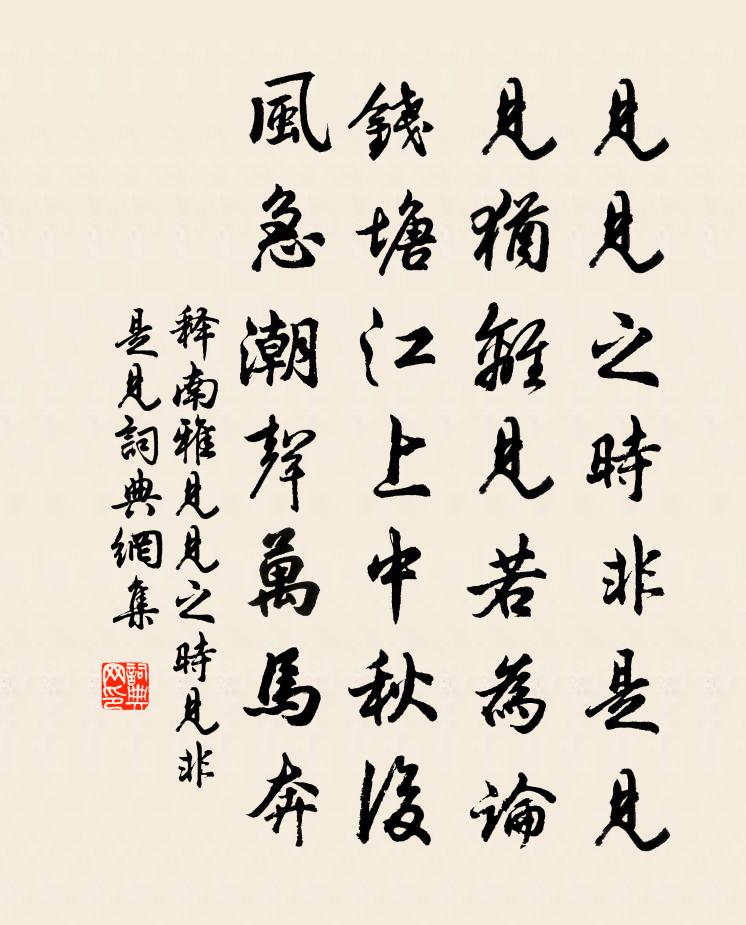 見見之時非是見
見猶離見若為論
錢塘江上中秋後
風急潮聲萬馬奔
释南雅見見之時見非
是見詞典網集
詞典网印